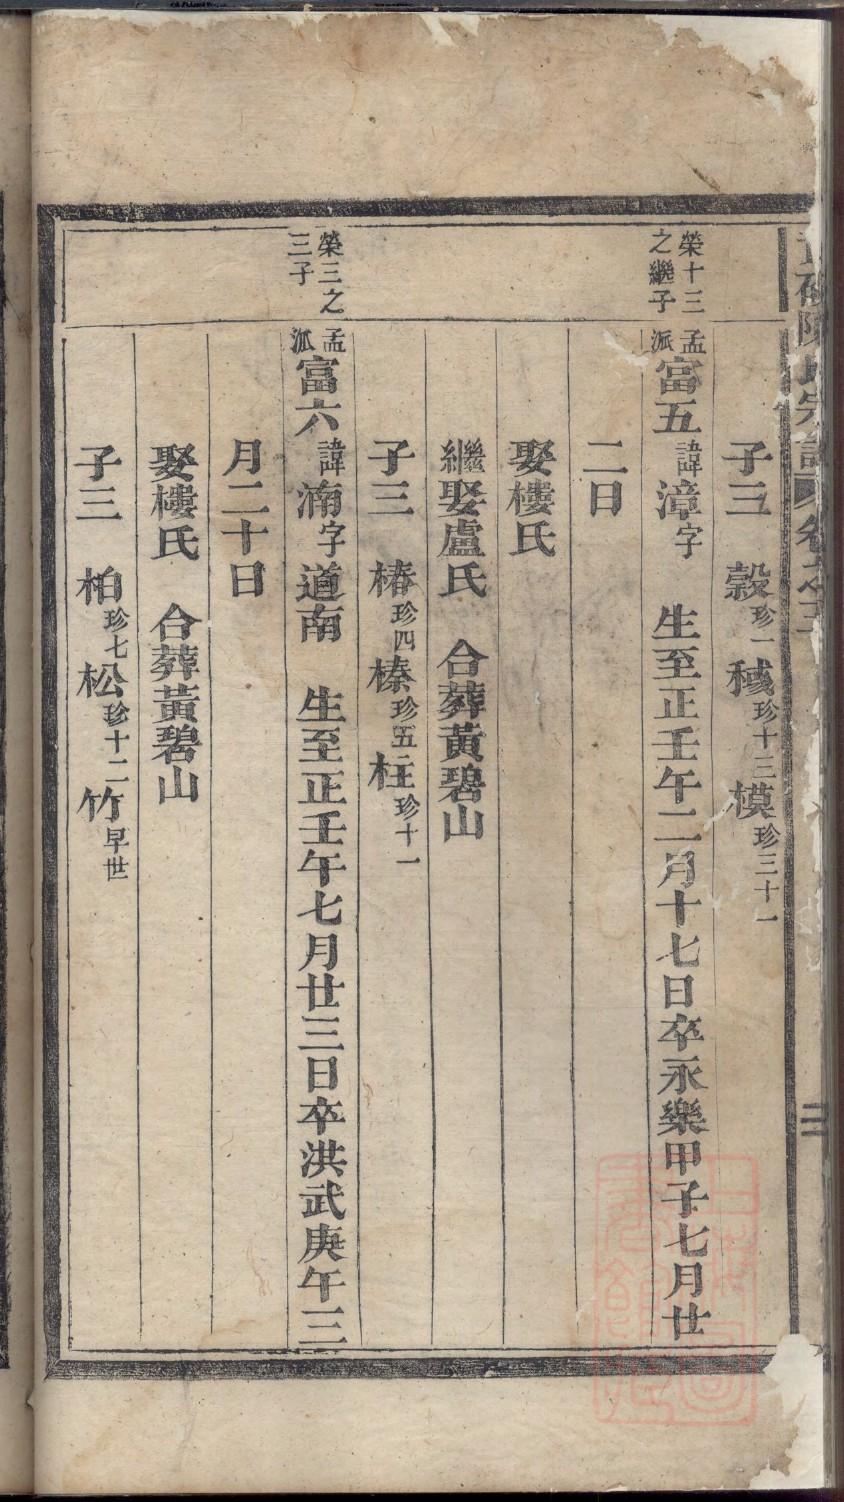 陳氏宗譜 卷之三
子三 穀珍一 穊珍十三 模珍三十一
榮十三之繼子
孟派富五諱漳字 生至正壬午二月十七日卒永樂甲子七月廿
二日
娶樓氏
繼娶盧氏 合葬黃碧山
子三 椿珍四 榛珍五 柱珍十一
榮三之三子
孟派富六諱湳字道南 生至正壬午七月廿三日卒洪武庚午三
月二十日
娶樓氏 合葬黃碧山
子三 柏珍七 松珍十二 竹早世